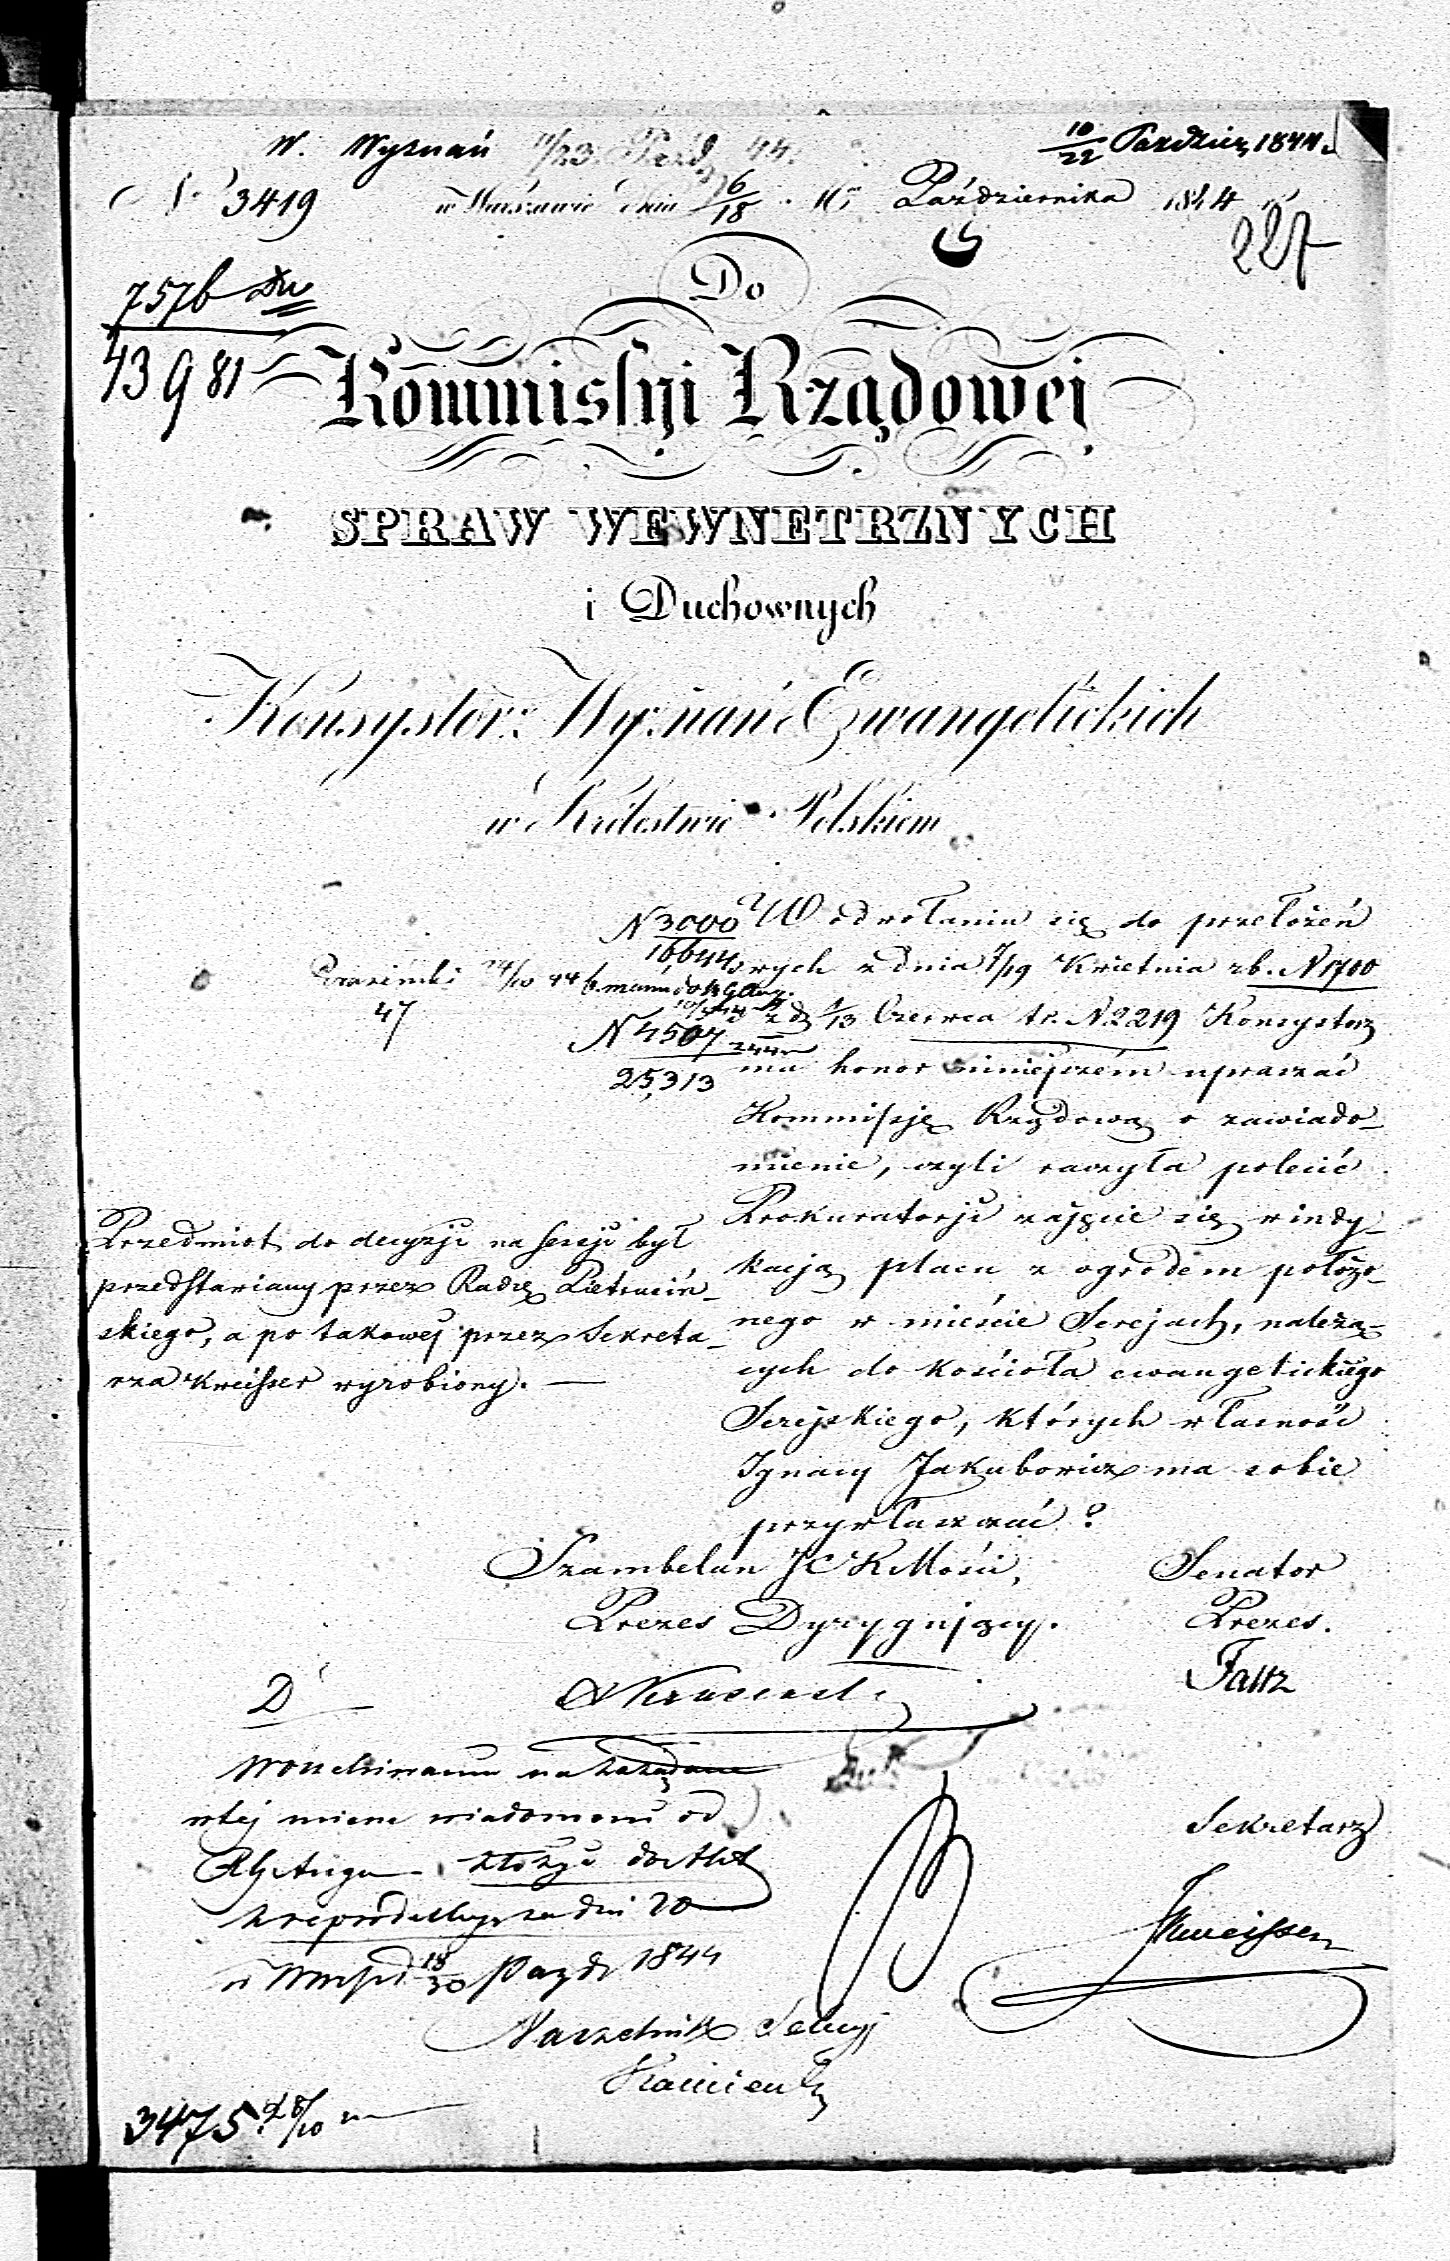 W. Wyznań 11/23 Paźd 44.
10/22 Paździer 1844.
№ 3419 w Warszawie dnia 6/18 Października 1844 r
227
757b
43981
Do
Kommissyi Rządowej
SPRAW WEWNETRZNYCH
i Duchownych
Konsystorz Wyznań Ewangelickich
w Królestwie Polskiem
N 3000
16644
W odwołaniu się do przełożeń
swych z dnia 7/19 Kwietnia rb. N 1700
47
i z d. 1/13 Czerwca t.r. N 2219 Konsystorz
N 4507
25,313
ma honor niniejszém upraszać
Kommissję Rządową o zawiado-
mienie, czyli raczyła polecić
Prokuratorji zajęcie się windy-
kacją placu z ogrodem położo-
nego w mieście Serejach, należą-
cych do kościoła ewangelickiego
Serejskiego, których własność
Ignacy Jakubowicz ma sobie
przywłaszczać?
Przedmiot do decyzji na sessji był
przedstawiany przez Radcę Pietrusiń-
skiego, a po takowej przez Sekreta-
rza Kreisser wyrobiony. —
Szambelan JCK Mości,
Prezes Dyrygujący.
Senator
Prezes.
D
w tej mierze wiadomość od
złożyć do Akt
z reprodukcyą za dni 20
18/30 Paźdz 1844
Naczelnik Sekcyi
Sekretarz
3475 28/10